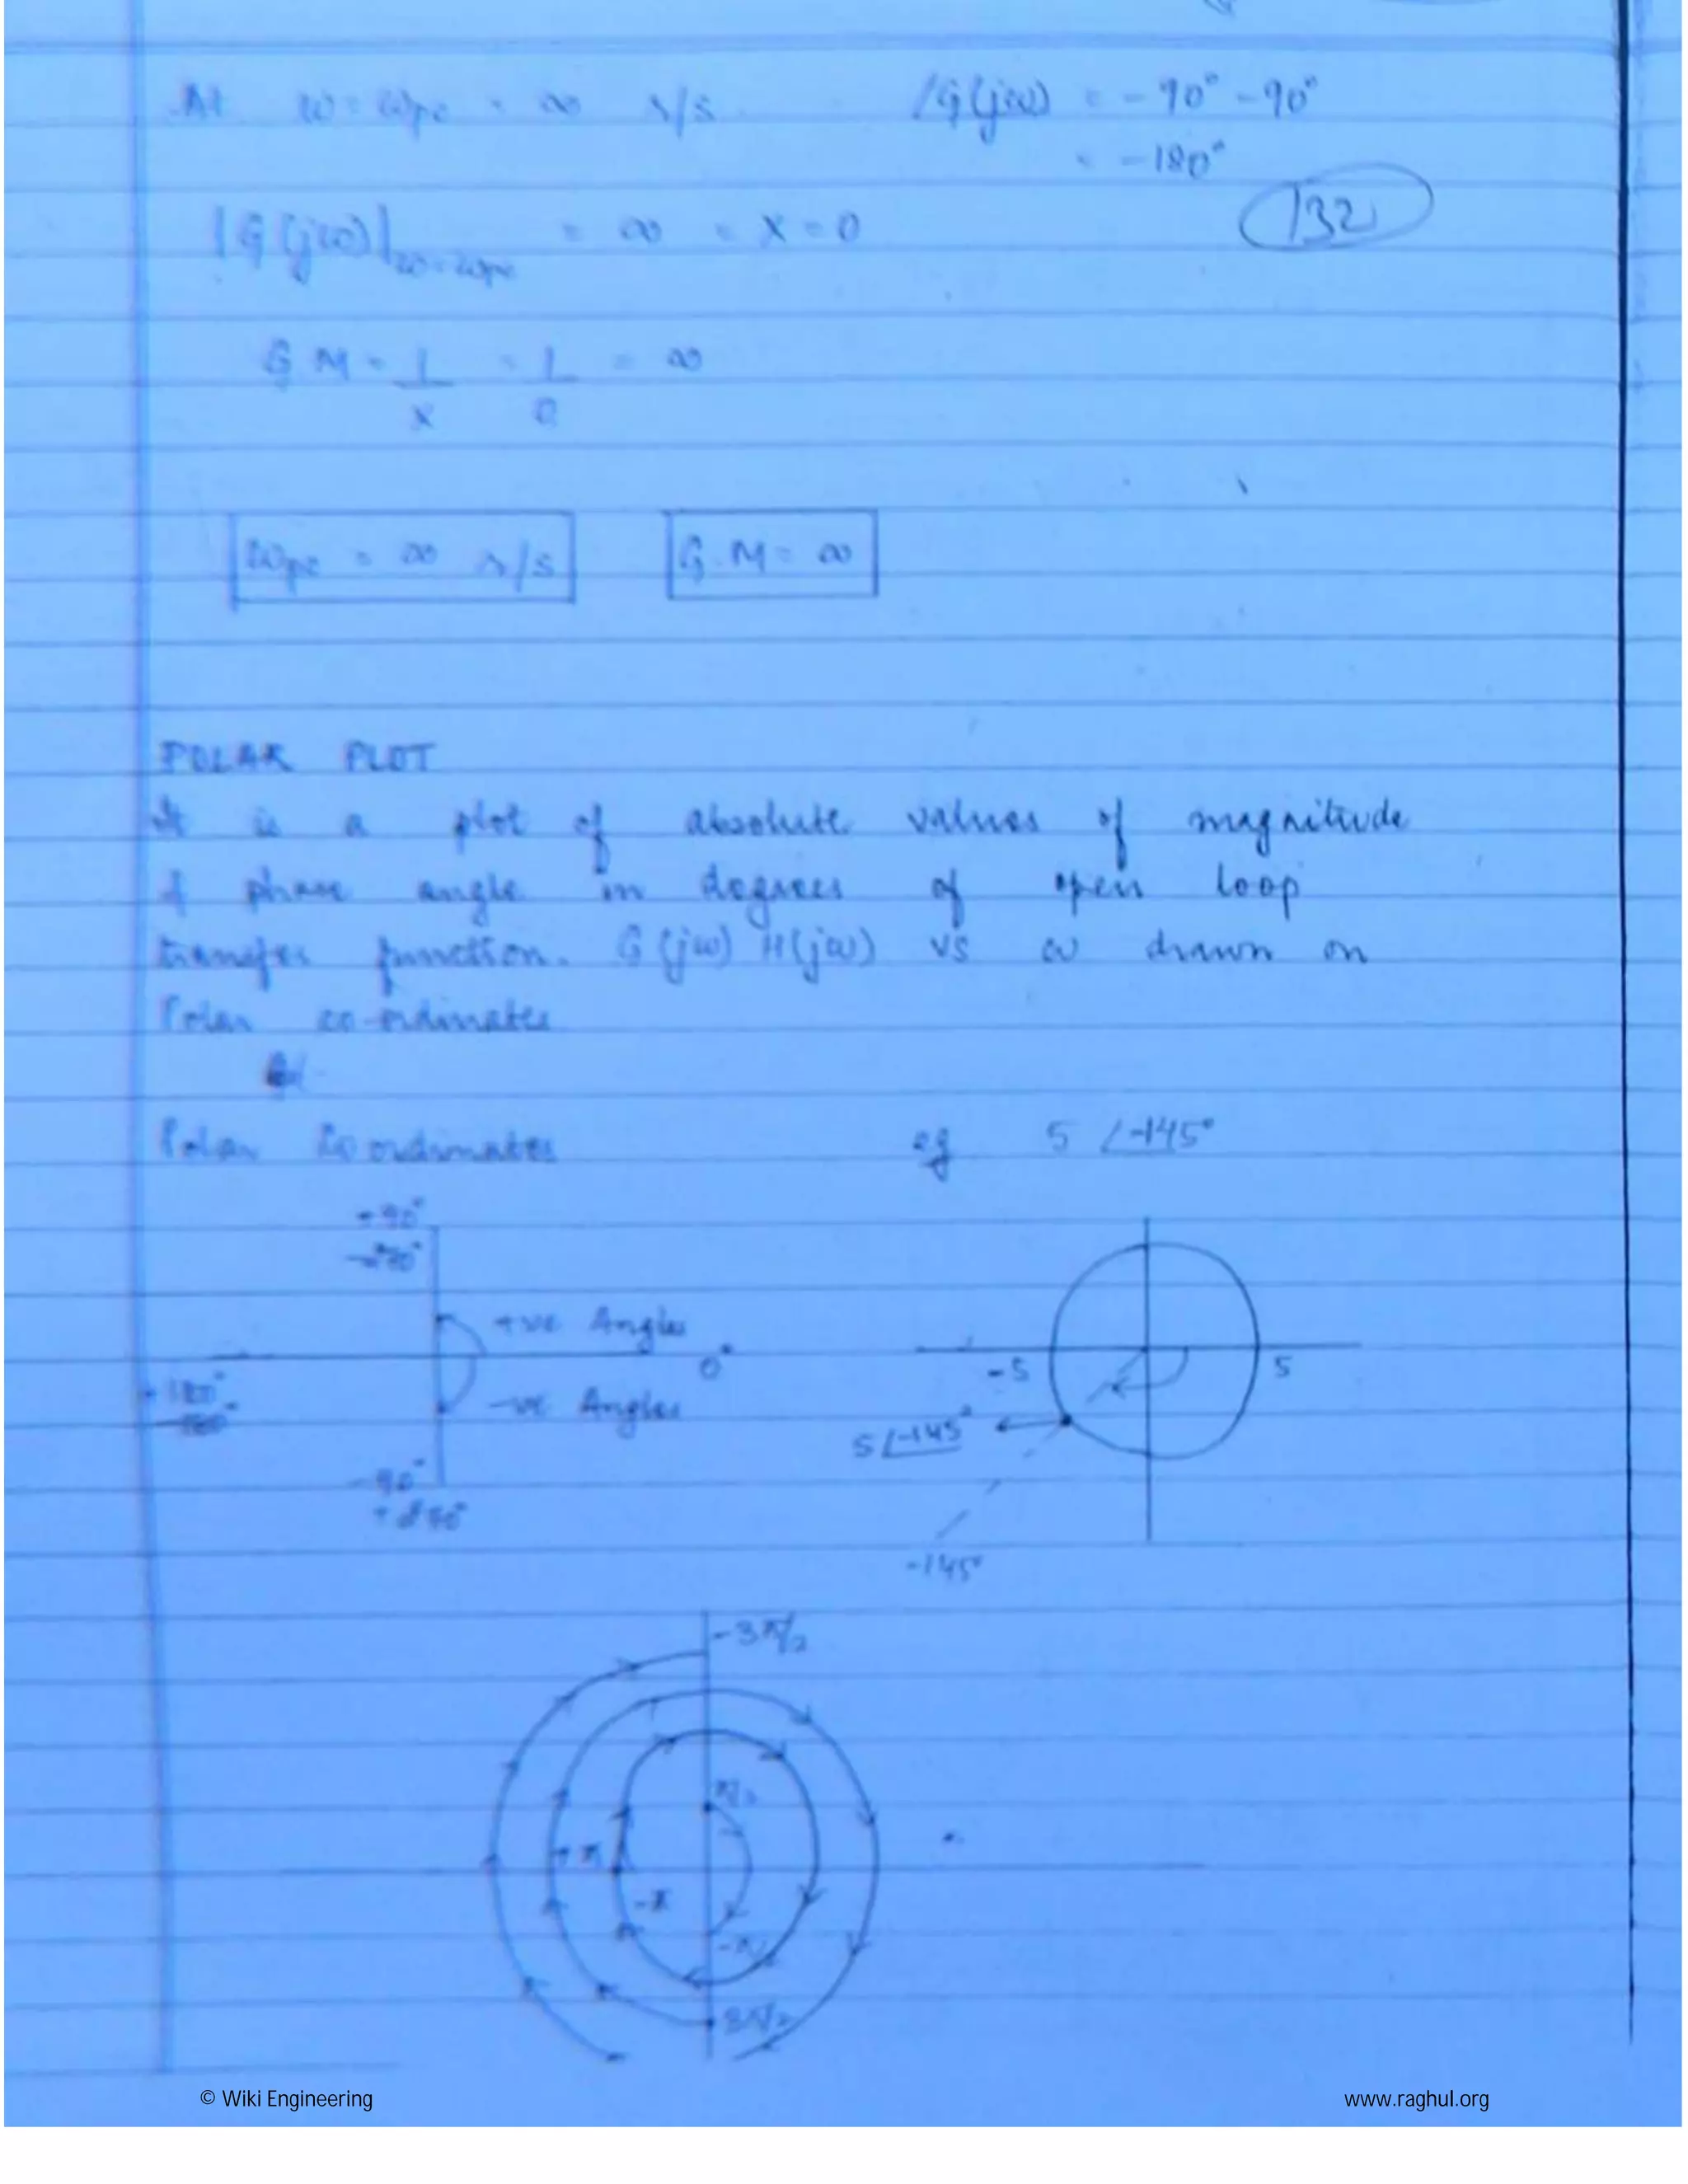 At ω = ωpc = ∞ r/s ∠G(jω) = -90° -90°
= -180°
132
|G(jω)|ω=ωpc = ∞ = X = 0
G M = 1/X = 1/0 = ∞
ωpc = ∞ r/s G.M = ∞
POLAR PLOT
It is a plot of absolute values of magnitude
& phase angle in degrees of open loop
transfer function. G(jω) H(jω) vs ω drawn on
Polar co-ordinates
Polar Co ordinates eg 5 ∠-145°
+90°
-270°
+ve Angles
0°
-5 5
+180°
-180°
-ve Angles
5∠-145°
-90°
+270°
-145°
-3π/2
π/2
+π
-π
-π/2
3π/2
© Wiki Engineering www.raghul.org